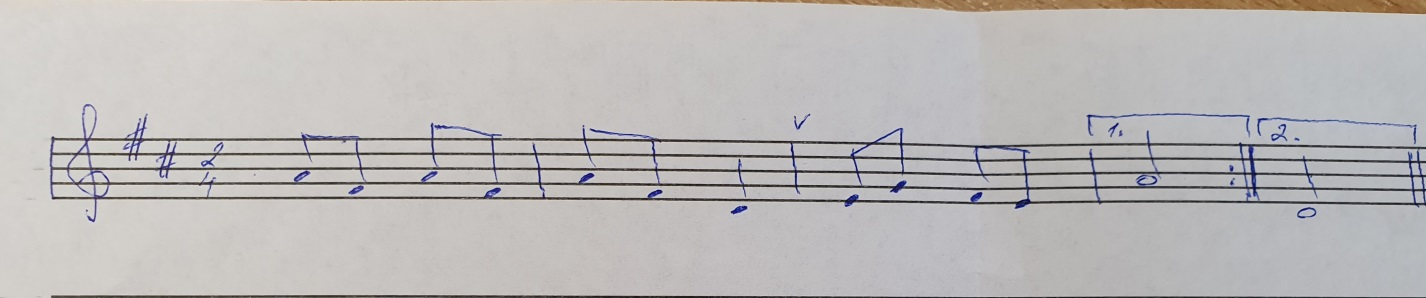 2
4
V
1.
2.